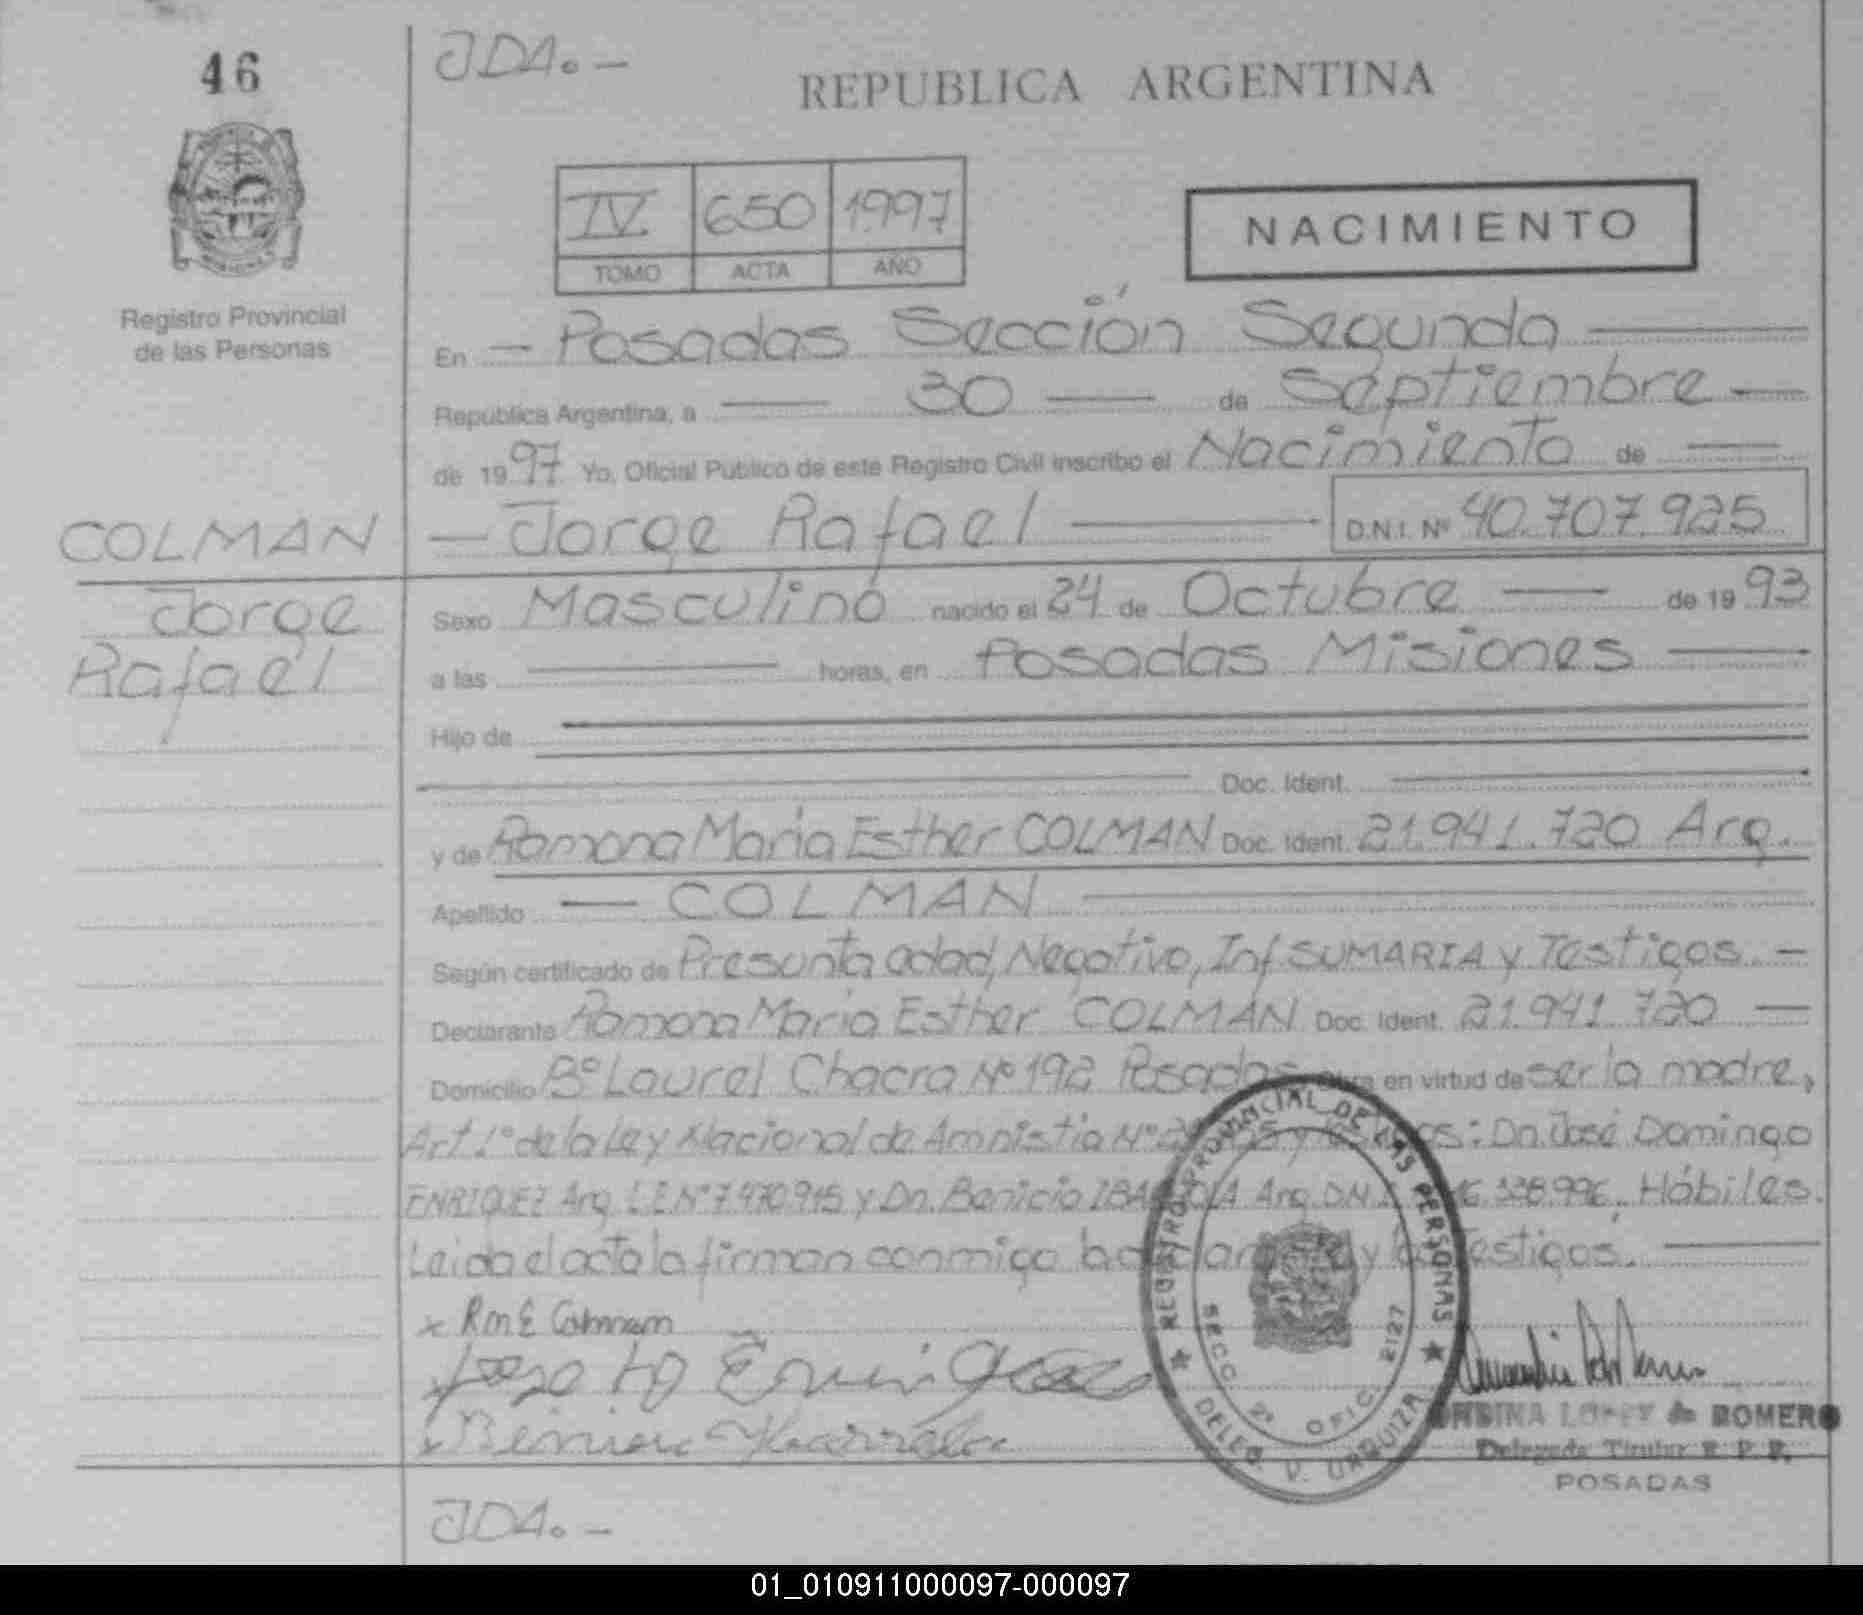 46
JDA.-
REPUBLICA ARGENTINA
IV 650 1997
TOMO ACTA AÑO
NACIMIENTO
Registro Provincial
de las Personas
En — Posadas Sección Segunda —
República Argentina, a — 30 — de Septiembre —
de 1997 Yo, Oficial Público de este Registro Civil inscribo el Nacimiento de —
COLMAN
— Jorge Rafael — D.N.I. Nº 40.707.925
Jorge
Rafael
Sexo Masculino nacido el 24 de Octubre — de 1993
a las — horas, en Posadas Misiones —
Hijo de —
— Doc. Ident. —
y de Ramona María Esther COLMAN Doc. Ident. 21.941.720 Arg.
Apellido — COLMAN —
Según certificado de Presunta edad, Negativo, Inf SUMARIA y Testigos. —
Declarante Ramona María Esther COLMAN Doc. Ident. 21.941.720 —
Domicilio Bº Laurel Chacra Nº 192 Posadas en virtud de ser la madre,
Art. 1º de la Ley Nacional de Amnistia Nº y : Dn. José Domingo
ENRIQUEZ Arg. L.E. Nº 7.470.915 y Dn. Benicio Arg. Hábiles.
Leida el acta la firman conmigo la y los Testigos.
x RmE Colmam
REGISTRO PROVINCIAL DE LAS PERSONAS
SECC. 2ª OFIC. 2127
DELEG. V. URQUIZA
LOPEZ de ROMERO
Delegada Titular R. P. P.
POSADAS
JDA.-
01_010911000097-000097